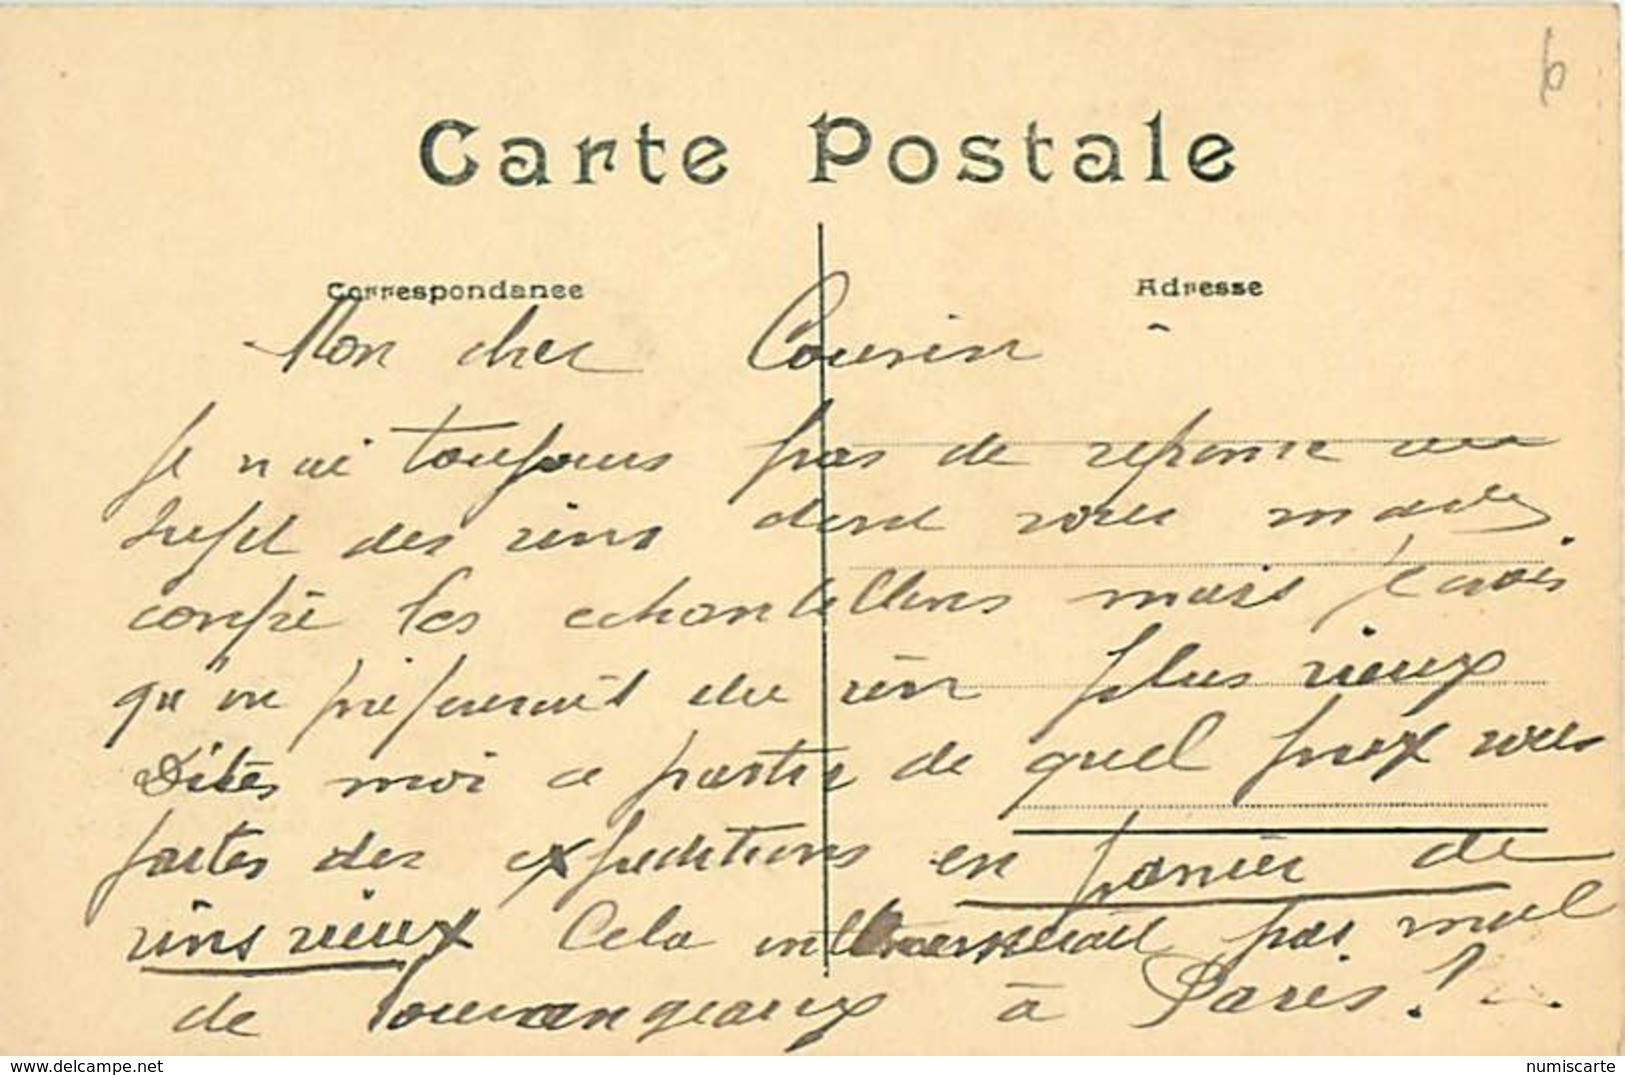 6
Carte Postale
Correspondance
Adresse
Mon cher Cousin
Je n'ai toujours pas de reponse au
sujet des vins dont vous m'avez
confié les echantillons mais je crois
qu'on préférerait du vin plus vieux
Dites moi a partir de quel prix vous
faites des expeditions en panier de
vins vieux Cela interesserait pas mal
de Tourangeaux à Paris !
www.delcampe.net
numiscarte